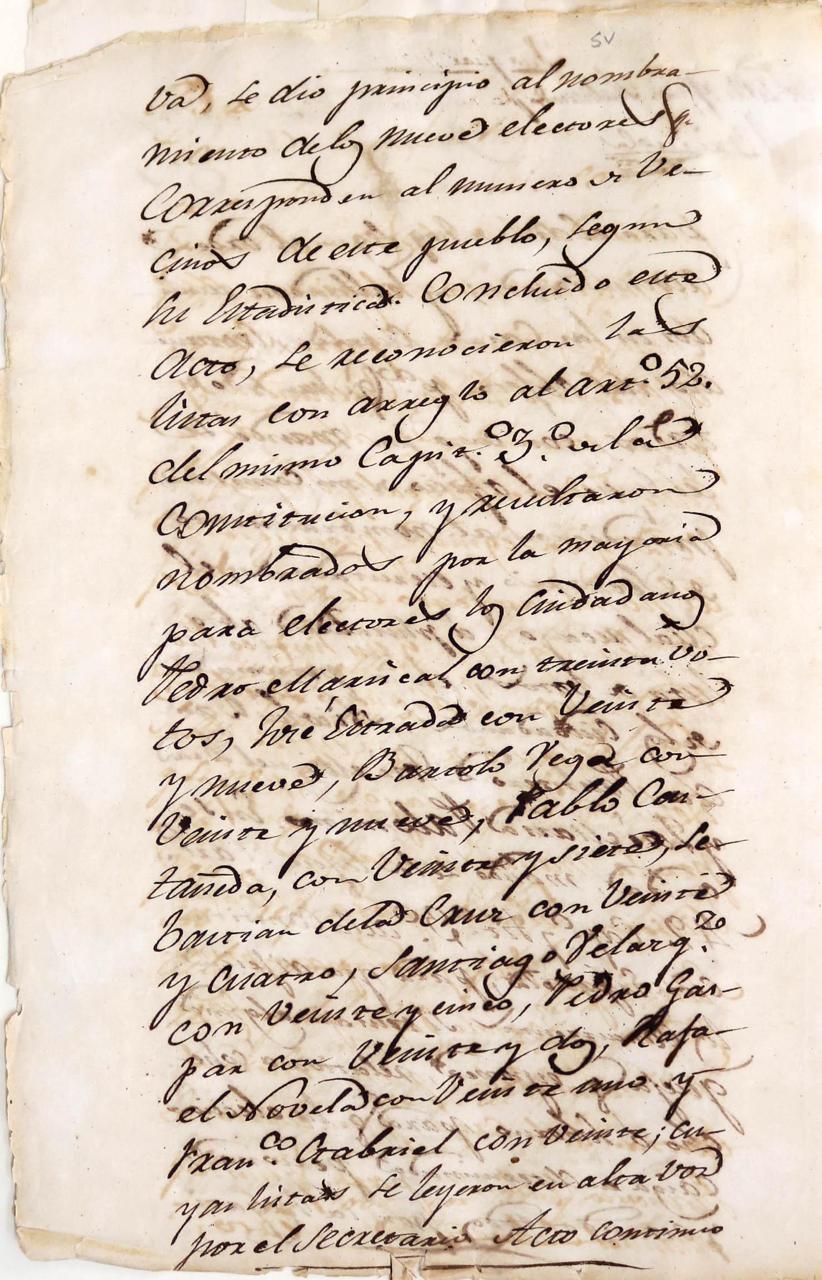 5v
va, se dio principio al nombra-
miento de los nueve electores q.e
Corresponden al numero de Ve-
cinos de este pueblo, segun
su Estadistica. Concluido este
Acto, se reconocieron las
listas con arreglo al art.o 52.
del mismo Capit.o 3.o de la
Constitucion, y resultaron
nombrados por la mayoria
para electores los Ciudadanos
Pedro Mariscal con treinta vo-
tos, José Estrada con Veinte
y nueve, Bartolo Vega con
Veinte y nueve, Pablo Cas-
tañeda, con Veinte y siete, Se-
bastian de la Cruz con Veinte
y cuatro, Santiago Velazq.z
con Veinte y cinco, Pedro Gas-
par con Veinte y dos, Rafa-
el Novela con Veinte uno y
Fran.co Gabriel con Veinte; cu-
yas listas se leyeron en alta voz
por el Secretario Acto continuo